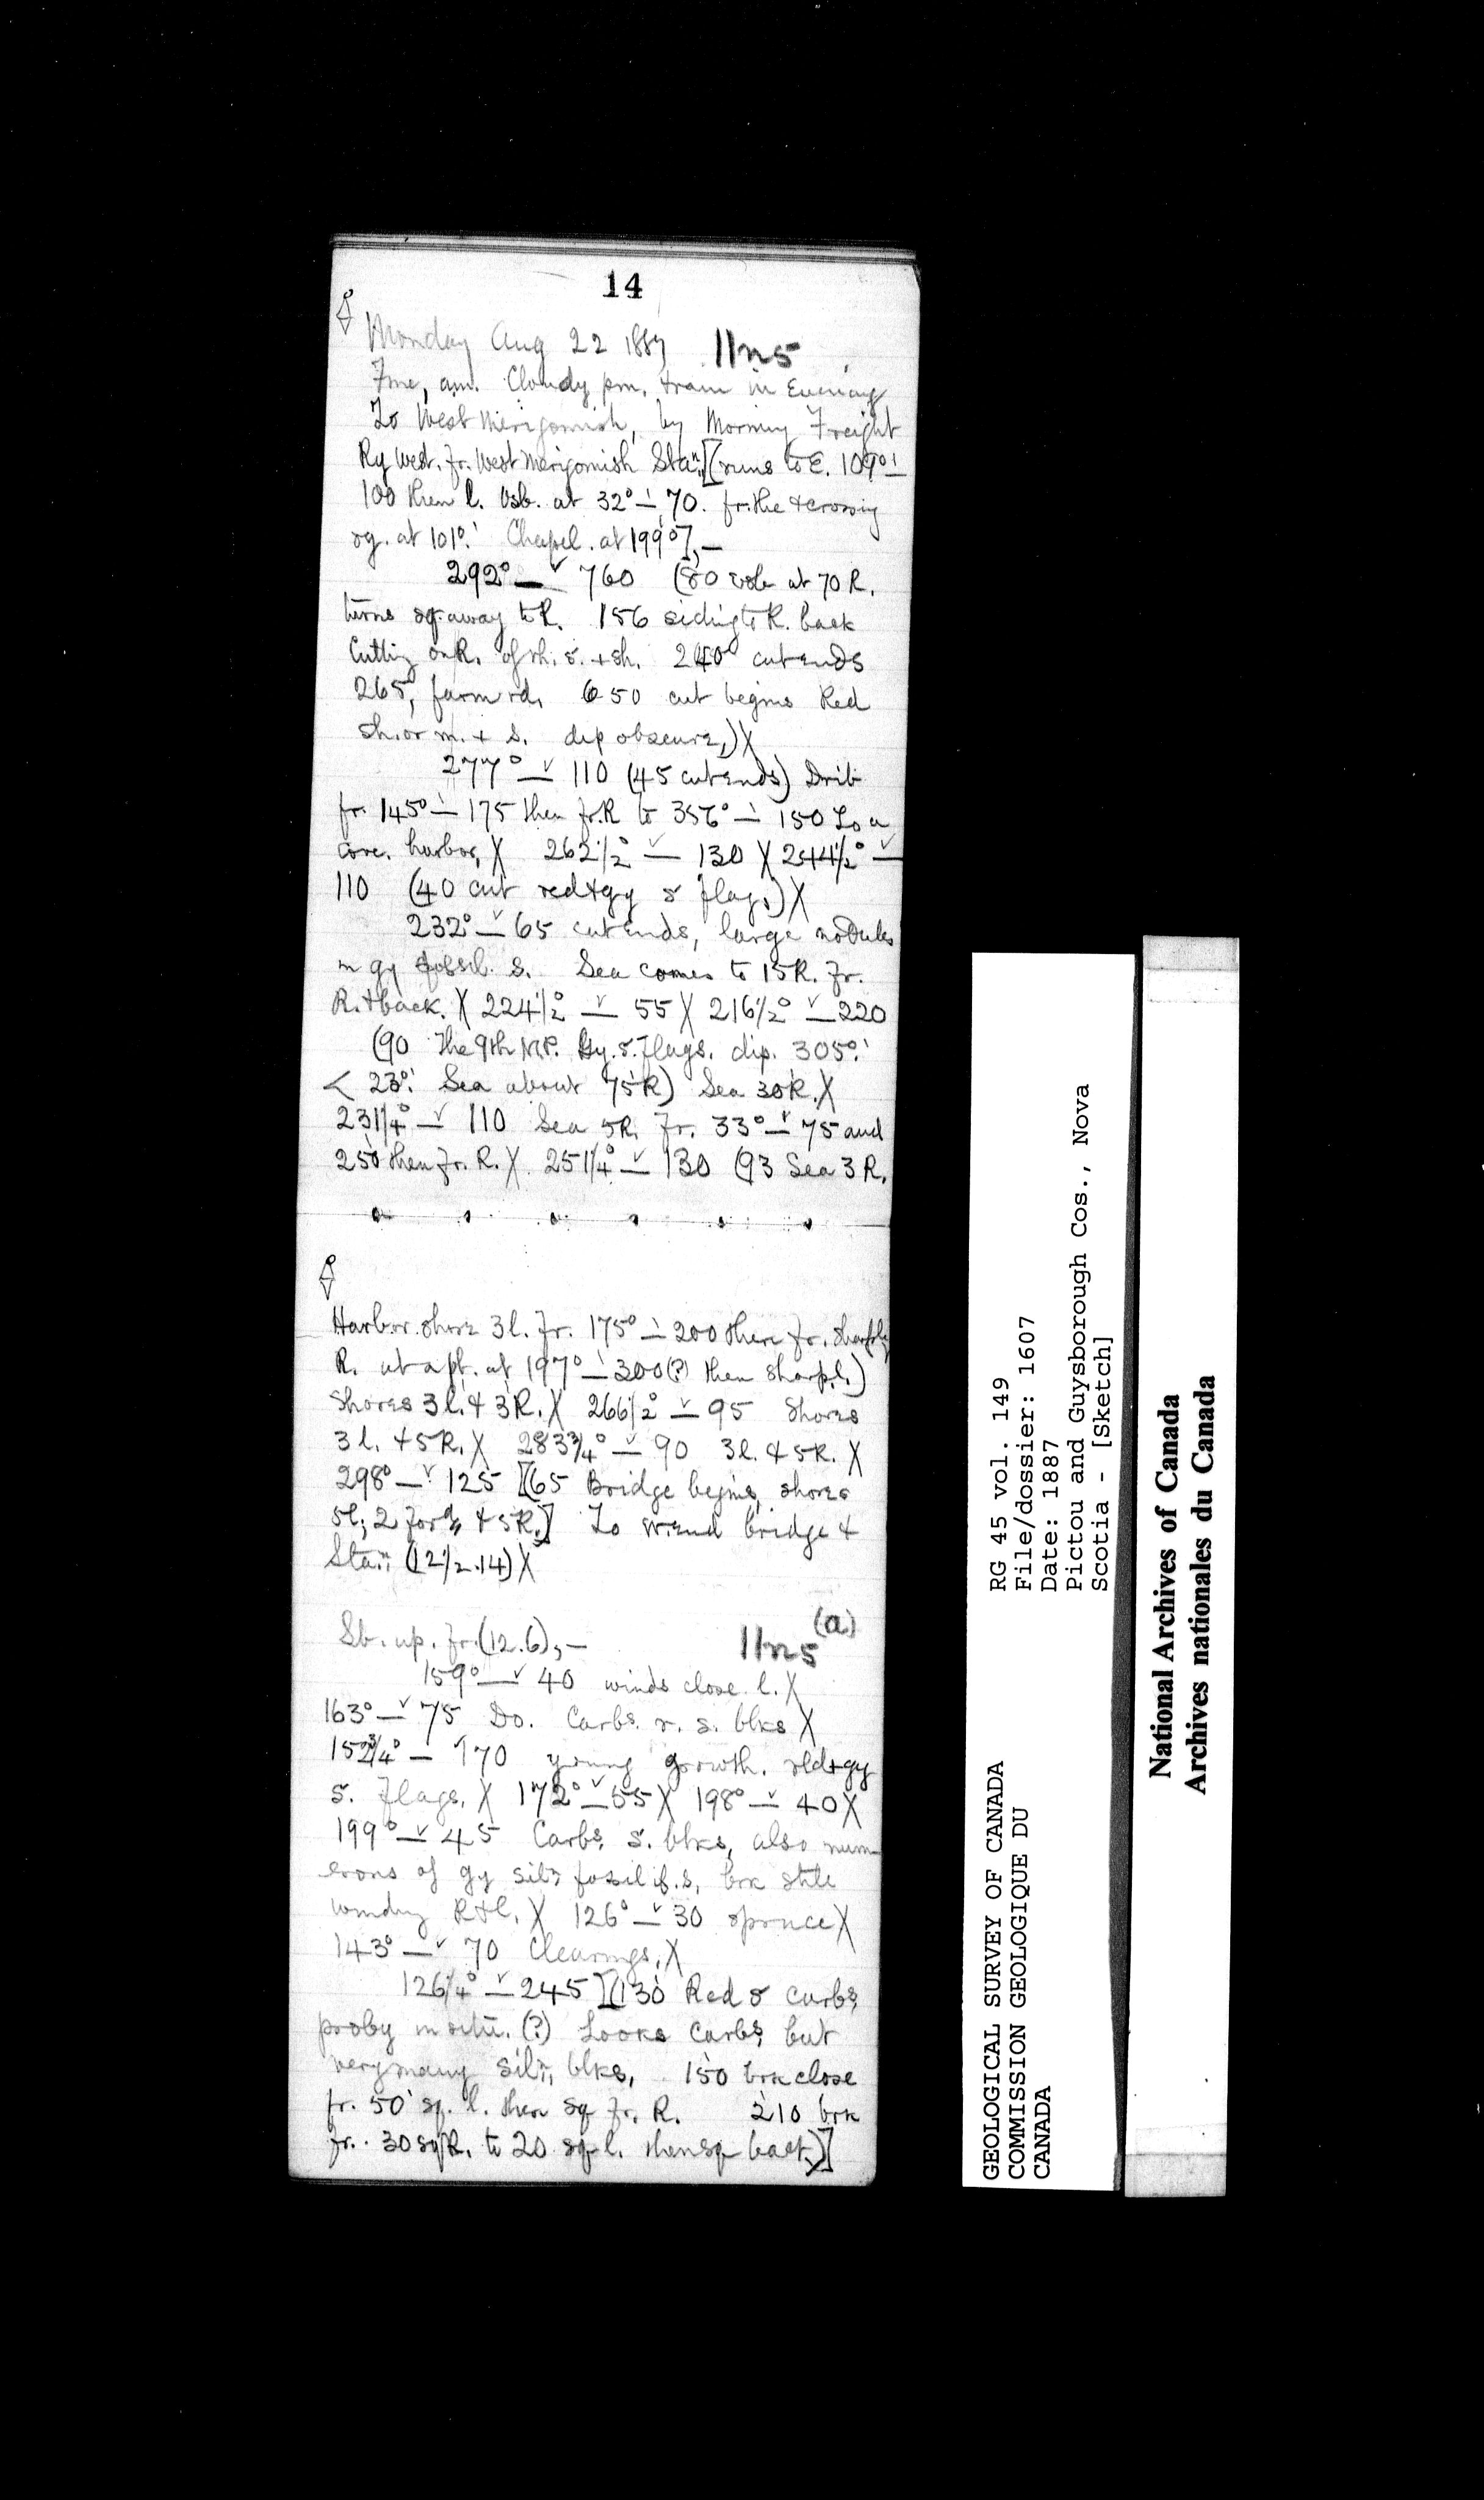 14
Monday Aug 22 1887 11n5
Fine, am. Cloudy pm. train in Evening
To West Merigomish, by Morning Freight
Ry West. fr. West Merigomish Stan. [(runs to E. 109°
100 then l. at 32° — 70. fr. the + crossing
at 101°. Chapel. at 199°], —
292° — 760 (80 at 70 R.
turns away to R. 156 siding to R. back
Cutting on R. of sh. s. + sh. 240 cut ends
265, farm rd, 650 cut begins Red
sh. or m. + s. dip obscure,) X
277° — 110 (45 cut ends)
fr. 145° — 175 then fr. R to 356° — 150 To a
harbor, X 262½° — 130 X 244½° —
110 (40 cut red+gy s flags) X
232° — 65 cut ends, large nodules
in gy s. Sea comes to 15 R. fr.
R. + back. X 224½° — 55 X 216½° — 220
(90 The 9th M.P. Gy. s. flags. dip. 305°.
< 23°. Sea about 75 R) Sea 30 R. X
231¼° — 110 Sea 5 R. Fr. 33° — 75 and
250 then fr. R. X 251¼° — 130 (93 Sea 3 R.
Harbor shore 3 l. Fr. 175° — 200 then fr. sharply
R. at a pt. at 197° — 300 (?) then sharp l.)
Shores 3 l. & 3 R. X 266½° — 95 Shores
3 l. + 5 R. X 283¾° — 90 3 l. & 5 R. X
298° — 125 [(65 Bridge begins, shores
5 l; 2 & 5 R.)] To end bridge &
Stan. (12½.14) X
(a)
Sb. up. fr. (12.6), — 11n5
159° — 40 winds close l. X
163° — 75 Do. Carbs. r. s. blks X
152¾° — 170 young growth. red+gy
s. flags, X 172° — 55 X 198° — 40 X
199° — 45 Carbs. s. blks, also num-
erous of gy siln fossilif. s, brk still
winding R+l, X 126° — 30 spruce X
143° — 70 Clearings, X
126¼° — 245 [(130 Red s carbs,
proby in situ. (?) Looks Carbs, but
very many siln, blks, 150 brk close
fr. 50 sq. l. then sq fr. R. 210 brk
fr. 30 sq R. to 20 sq l. then sq back)]
GEOLOGICAL SURVEY OF CANADA
COMMISSION GEOLOGIQUE DU
CANADA
RG 45 vol. 149
File/dossier: 1607
Date: 1887
Pictou and Guysborough Cos., Nova
Scotia - [Sketch]
National Archives of Canada
Archives nationales du Canada